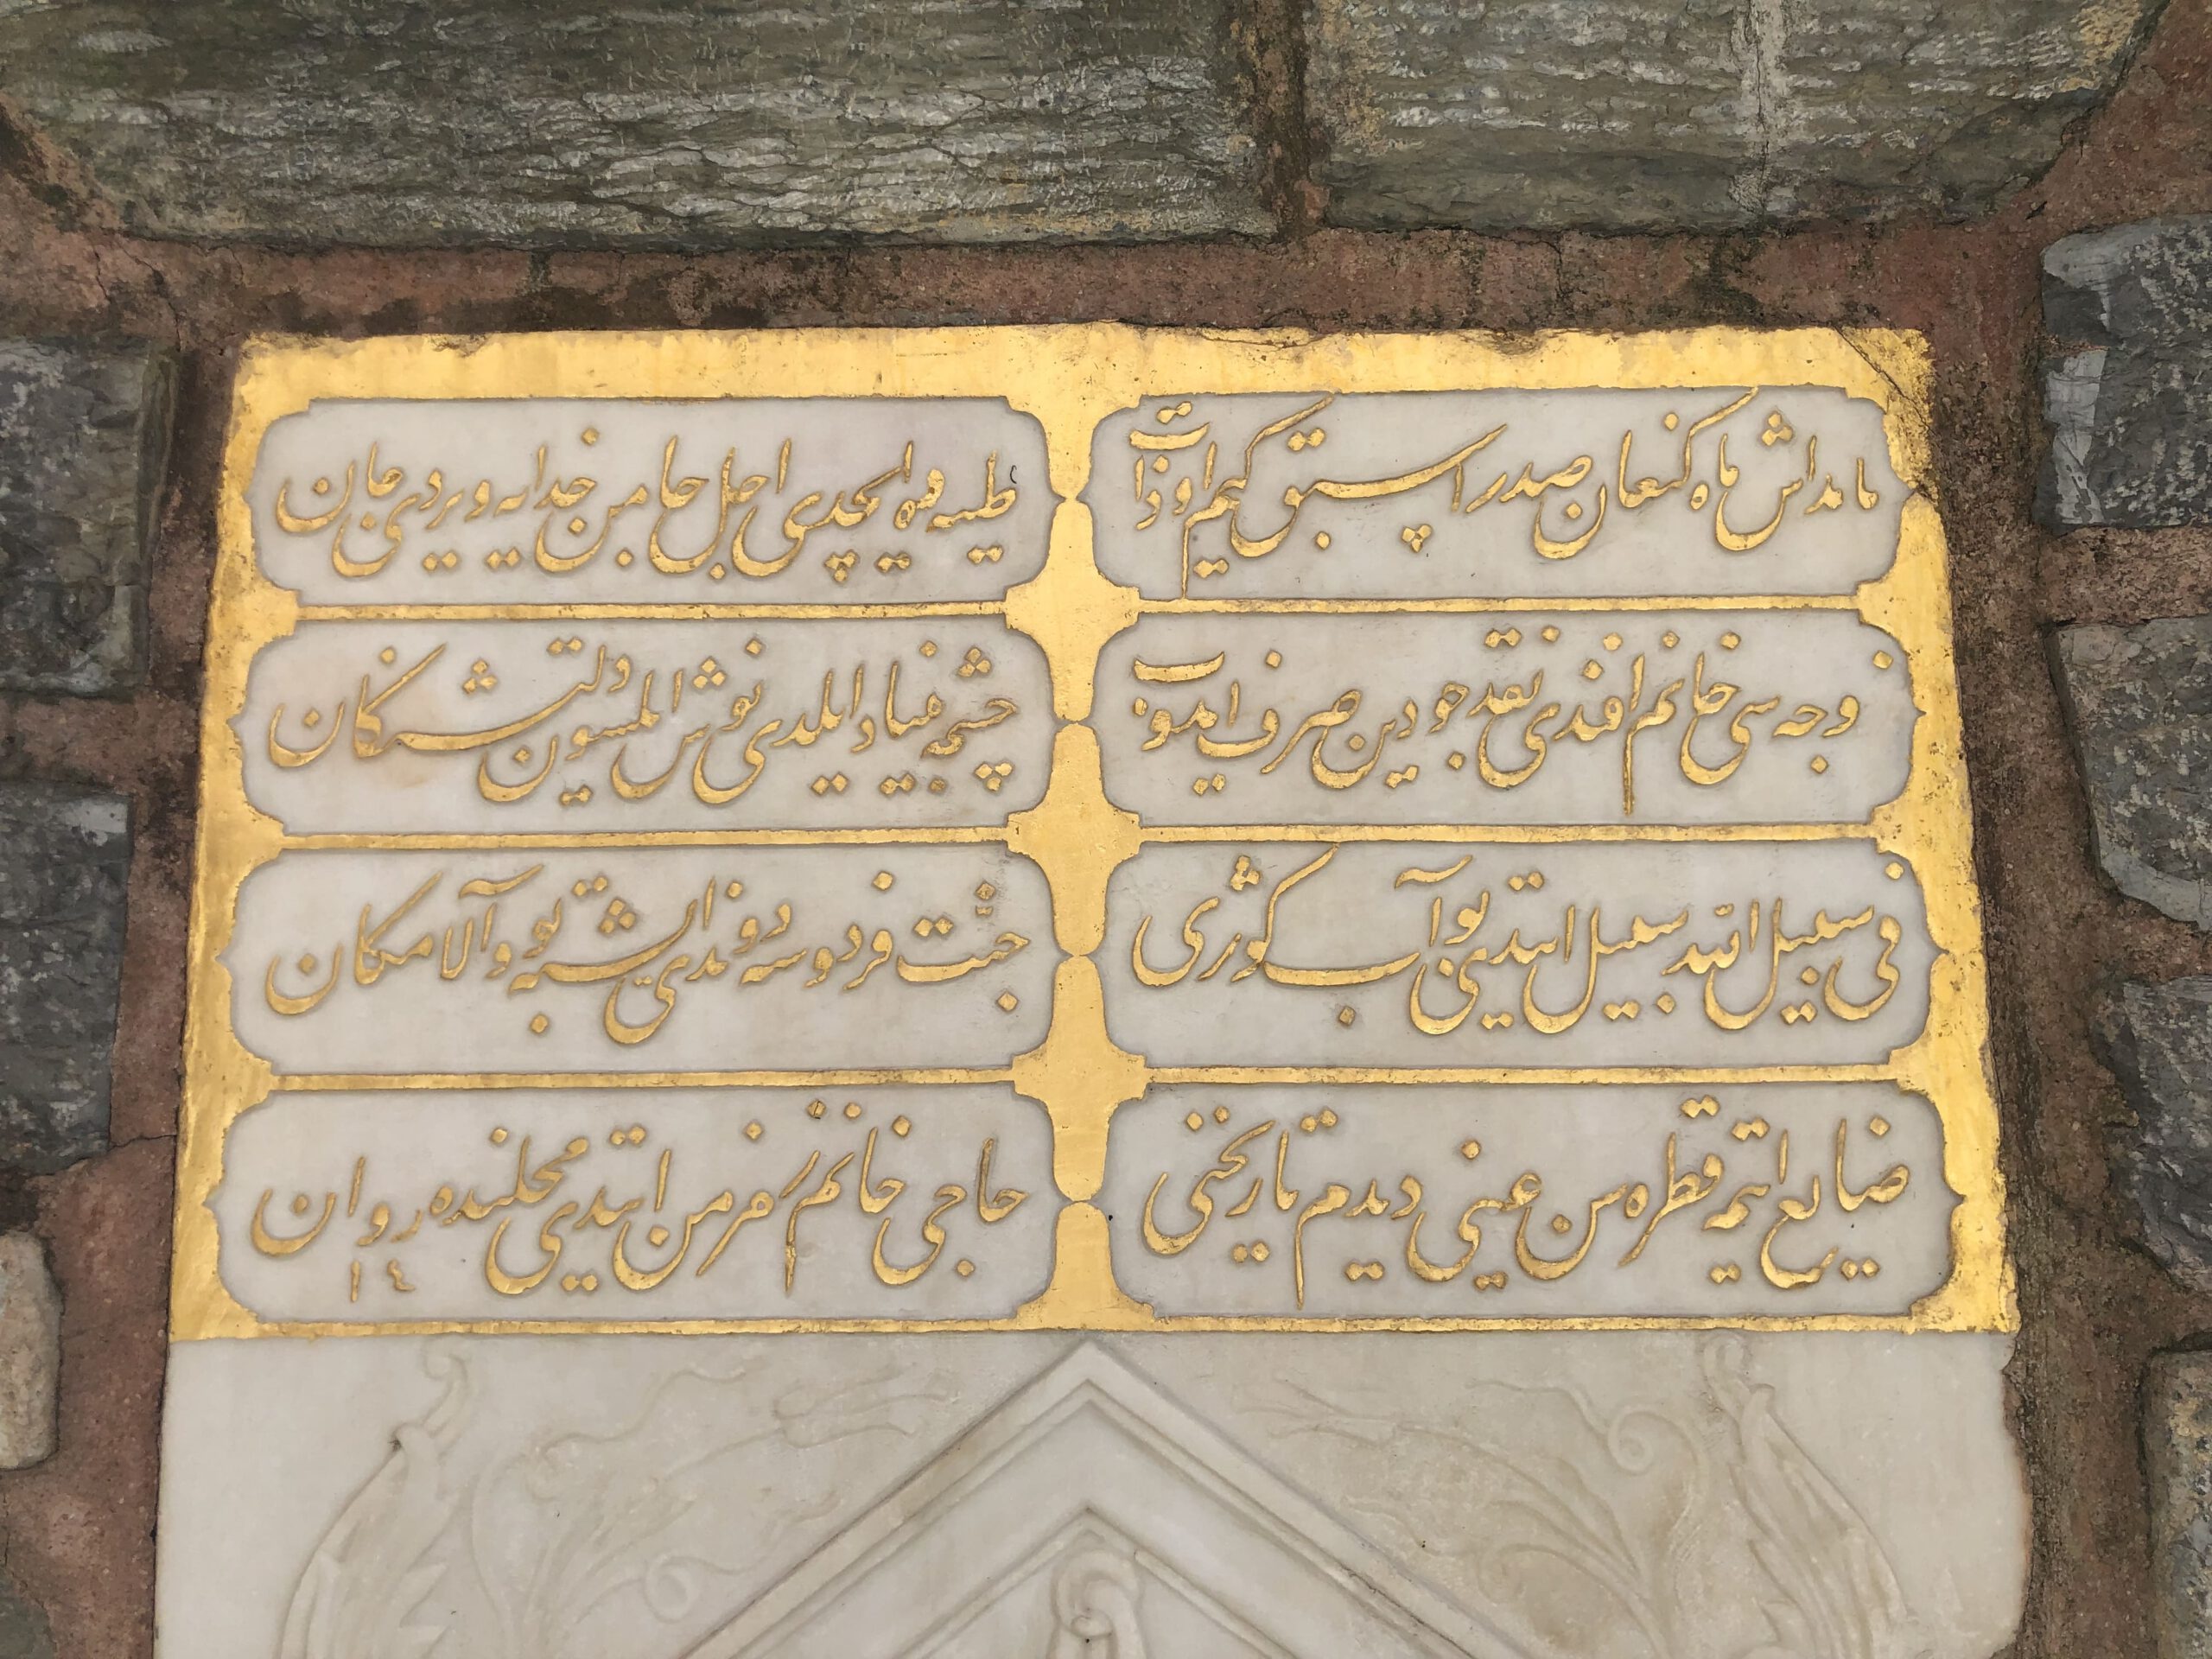 ماه کنعان صدر اسبق کیم او ذات
ایچدی اجل جامن خدایه ویردی جان
زوجه سی خانم افندی نقد جودین صرف ایدوب
چشمه بنیاد ایلدی نوش ایلسون دلتشنکان
فی سبیل الله سبیل ایتدی بو آب کوثری
جنت فردوسه دوندی ایشته بو والا مکان
ضایع ایتمه قطره سن عینی دیدم تاریخنی
حاجی خانم زمزمن ایتدی محلنده روان
١٤